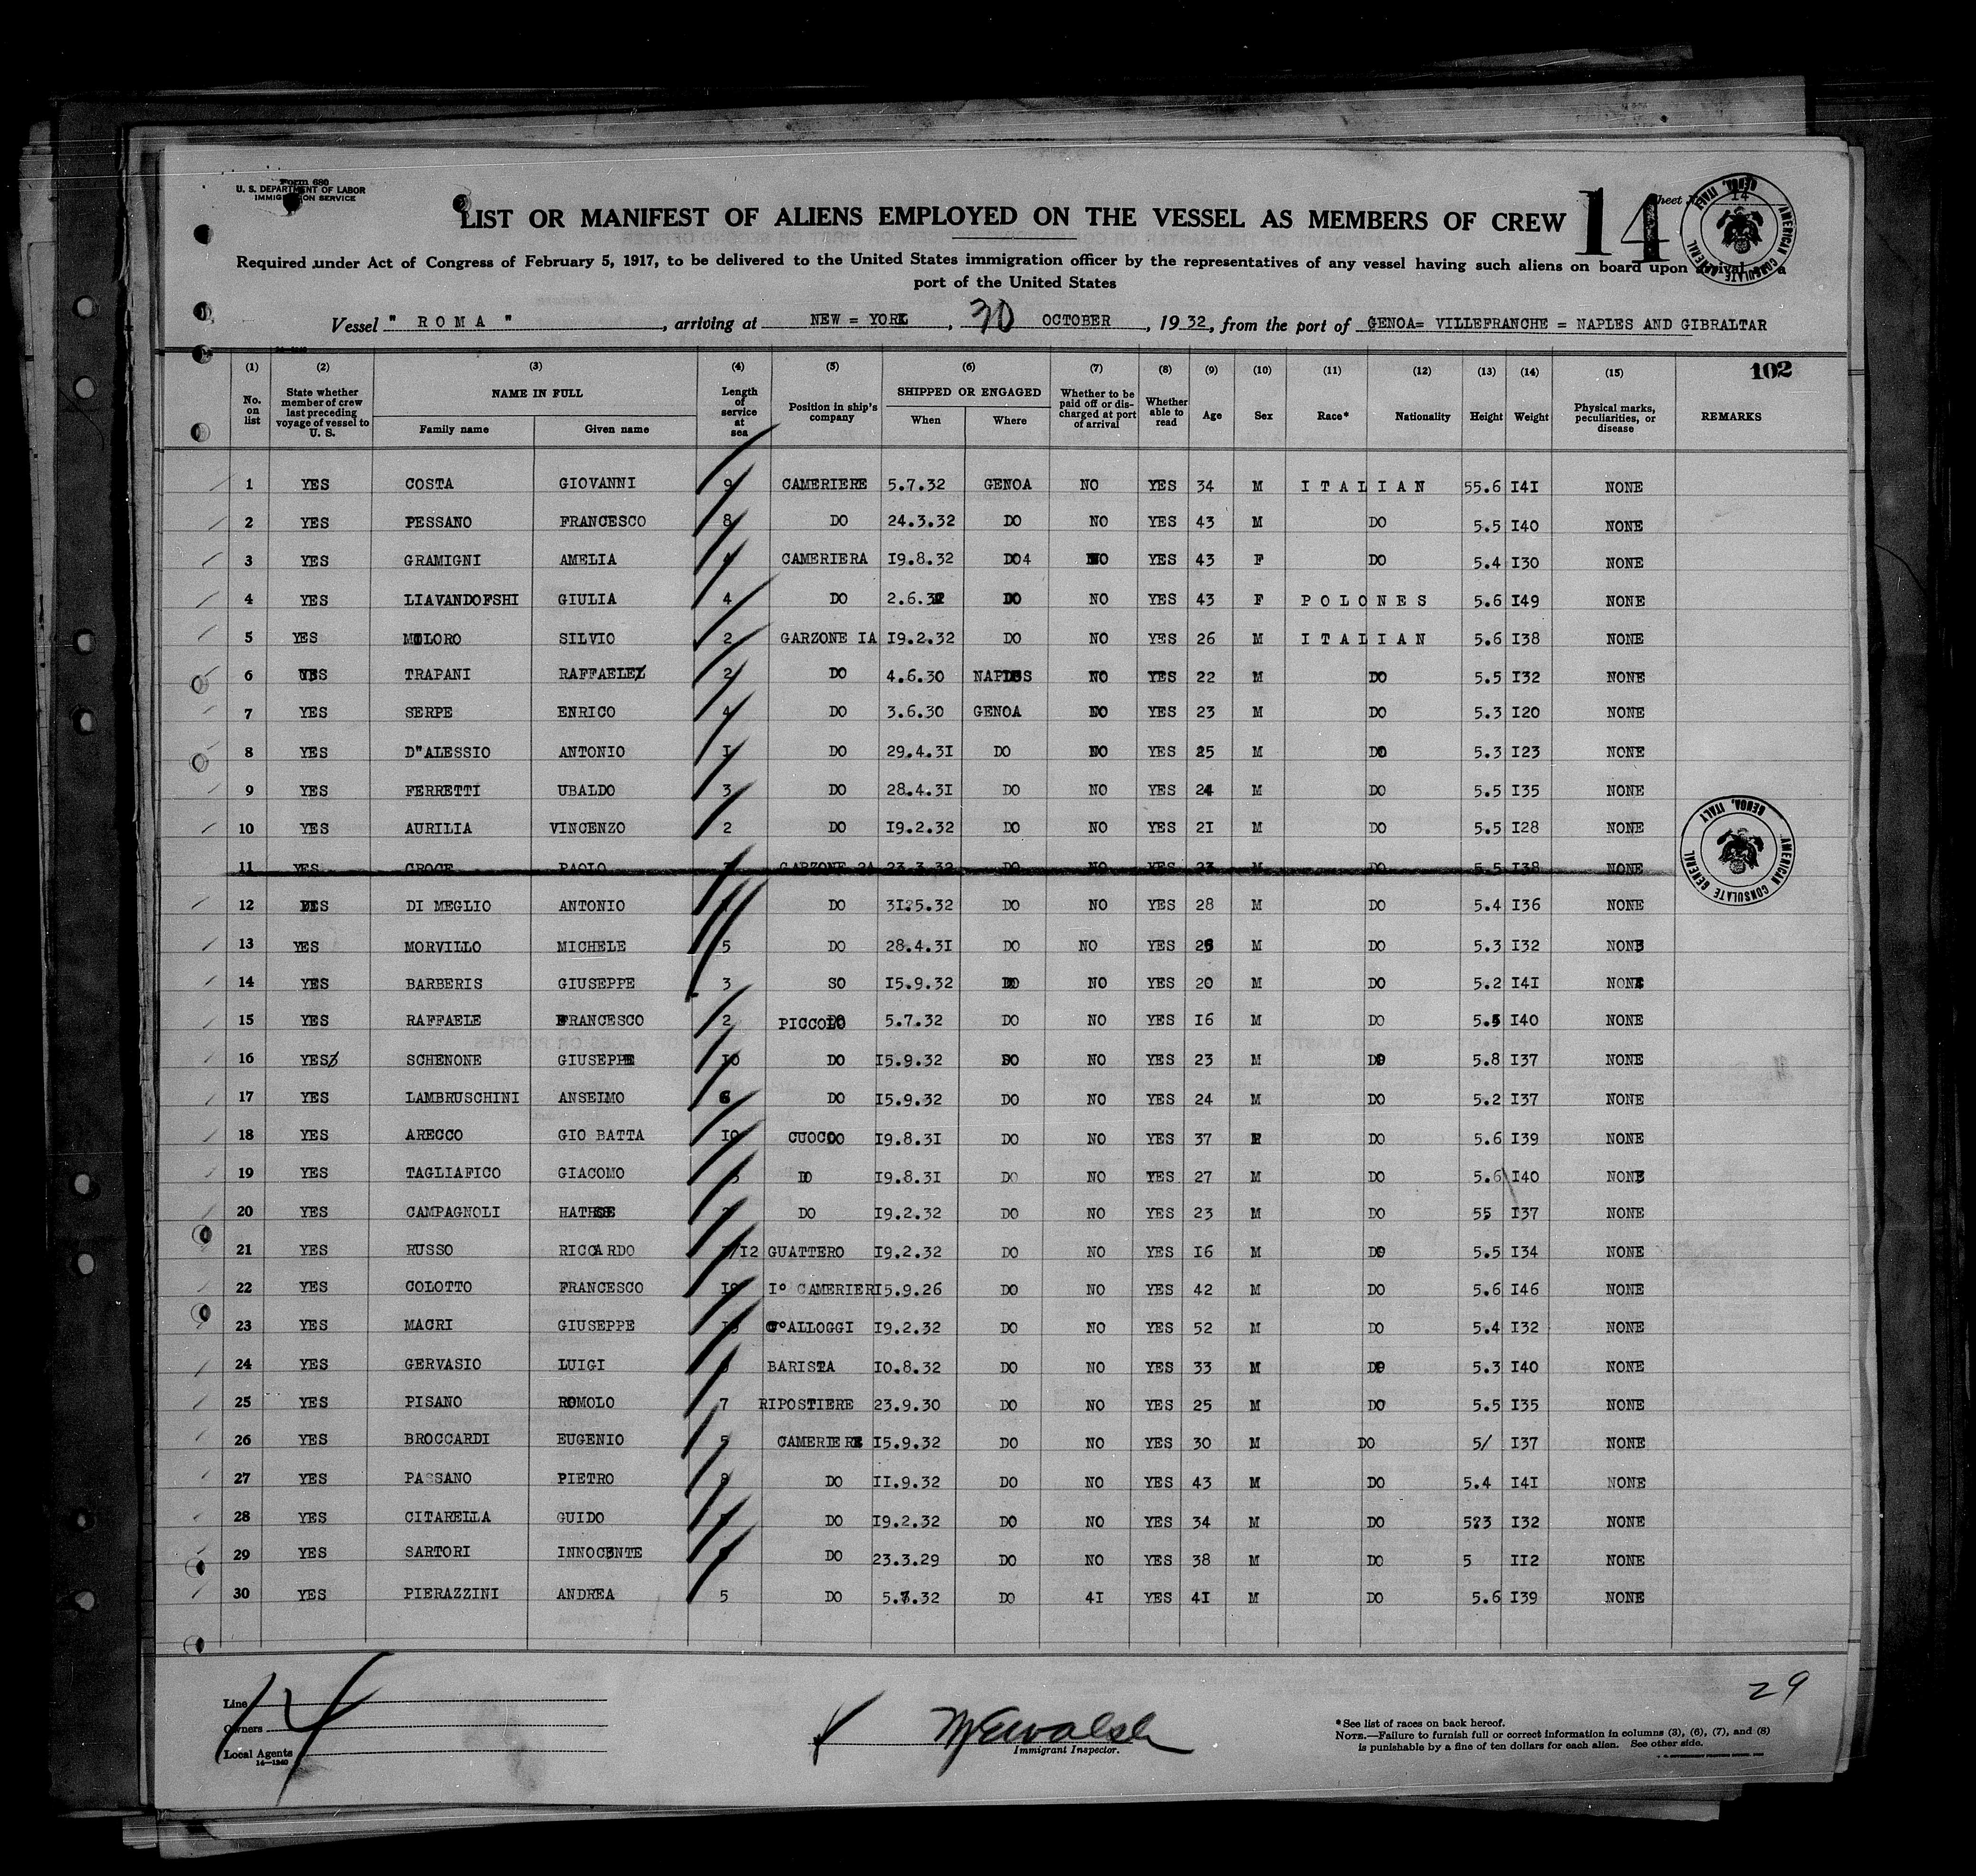 Form 680
U. S. DEPARTMENT OF LABOR
IMMIGRATION SERVICE
LIST OR MANIFEST OF ALIENS EMPLOYED ON THE VESSEL AS MEMBERS OF CREW 14
Sheet 14
AMERICAN CONSULATE GENERAL GENOA, ITALY
Required under Act of Congress of February 5, 1917, to be delivered to the United States immigration officer by the representatives of any vessel having such aliens on board upon arrival a
port of the United States
Vessel " ROMA ", arriving at NEW = YORK, OCTOBER, 1932, from the port of GENOA= VILLEFRANCHE = NAPLES AND GIBRALTAR
102
(1) No. on list (2) State whether member of crew last preceding voyage of vessel to U. S. (3) NAME IN FULL Family name Given name (4) Length of service at sea (5) Position in ship's company (6) SHIPPED OR ENGAGED When Where (7) Whether to be paid off or discharged at port of arrival (8) Whether able to read (9) Age (10) Sex (11) Race* (12) Nationality (13) Height (14) Weight (15) Physical marks, peculiarities, or disease REMARKS
1 YES COSTA GIOVANNI 9 CAMERIERE 5.7.32 GENOA NO YES 34 M ITALIAN 55.6 I4I NONE
2 YES PESSANO FRANCESCO 8 DO 24.3.32 DO NO YES 43 M DO 5.5 I40 NONE
3 YES GRAMIGNI AMELIA 4 CAMERIERA I9.8.32 DO4 NO YES 43 F DO 5.4 I30 NONE
4 YES LIAVANDOFSHI GIULIA 4 DO 2.6.32 DO NO YES 43 F POLONES 5.6 I49 NONE
5 YES MOLORO SILVIO 2 GARZONE IA I9.2.32 DO NO YES 26 M ITALIAN 5.6 I38 NONE
6 YES TRAPANI RAFFAELE 2 DO 4.6.30 NAPLES NO YES 22 M DO 5.5 I32 NONE
7 YES SERPE ENRICO 4 DO 3.6.30 GENOA NO YES 23 M DO 5.3 I20 NONE
8 YES D"ALESSIO ANTONIO I DO 29.4.3I DO NO YES 25 M DO 5.3 I23 NONE
9 YES FERRETTI UBALDO 3 DO 28.4.3I DO NO YES 24 M DO 5.5 I35 NONE
10 YES AURILIA VINCENZO 2 DO I9.2.32 DO NO YES 2I M DO 5.5 I28 NONE
11 YES CROCE PAOLO GARZONE 2A 23.3.32 DO NO YES 23 M DO 5.5 I38 NONE
12 YES DI MEGLIO ANTONIO DO 3I?5.32 DO NO YES 28 M DO 5.4 I36 NONE
13 YES MORVILLO MICHELE 5 DO 28.4.3I DO NO YES M DO 5.3 I32 NONE
14 YES BARBERIS GIUSEPPE 3 SO I5.9.32 DO NO YES 20 M DO 5.2 I4I NONE
15 YES RAFFAELE FRANCESCO 2 PICCOLO 5.7.32 DO NO YES I6 M DO 5.5 I40 NONE
16 YES SCHENONE GIUSEPPE I0 DO I5.9.32 DO NO YES 23 M DO 5.8 I37 NONE
17 YES LAMBRUSCHINI ANSELMO 6 DO I5.9.32 DO NO YES 24 M DO 5.2 I37 NONE
18 YES ARECCO GIO BATTA I0 CUOCO I9.8.3I DO NO YES 37 DO 5.6 I39 NONE
19 YES TAGLIAFICO GIACOMO DO I9.8.3I DO NO YES 27 M DO 5.6 I40 NONE
20 YES CAMPAGNOLI DO I9.2.32 DO NO YES 23 M DO 55 I37 NONE
21 YES RUSSO RICCARDO /I2 GUATTERO I9.2.32 DO NO YES I6 M DO 5.5 I34 NONE
22 YES COLOTTO FRANCESCO I° CAMERIER I5.9.26 DO NO YES 42 M DO 5.6 I46 NONE
23 YES MACRI GIUSEPPE C°ALLOGGI I9.2.32 DO NO YES 52 M DO 5.4 I32 NONE
24 YES GERVASIO LUIGI BARISTA I0.8.32 DO NO YES 33 M DO 5.3 I40 NONE
25 YES PISANO ROMOLO 7 RIPOSTIERE 23.9.30 DO NO YES 25 M DO 5.5 I35 NONE
26 YES BROCCARDI EUGENIO 5 CAMERIERE I5.9.32 DO NO YES 30 M DO 5/ I37 NONE
27 YES PASSANO PIETRO DO II.9.32 DO NO YES 43 M DO 5.4 I4I NONE
28 YES CITARELLA GUIDO DO I9.2.32 DO NO YES 34 M DO 5?3 I32 NONE
29 YES SARTORI INNOCENTE DO 23.3.29 DO NO YES 38 M DO 5 II2 NONE
30 YES PIERAZZINI ANDREA 5 DO 5.7.32 DO 4I YES 4I M DO 5.6 I39 NONE
AMERICAN CONSULATE GENERAL GENOA, ITALY
29
Line
Owners
Local Agents
14—1240
14
Immigrant Inspector.
*See list of races on back hereof.
NOTE.—Failure to furnish full or correct information in columns (3), (6), (7), and (8)
is punishable by a fine of ten dollars for each alien. See other side.